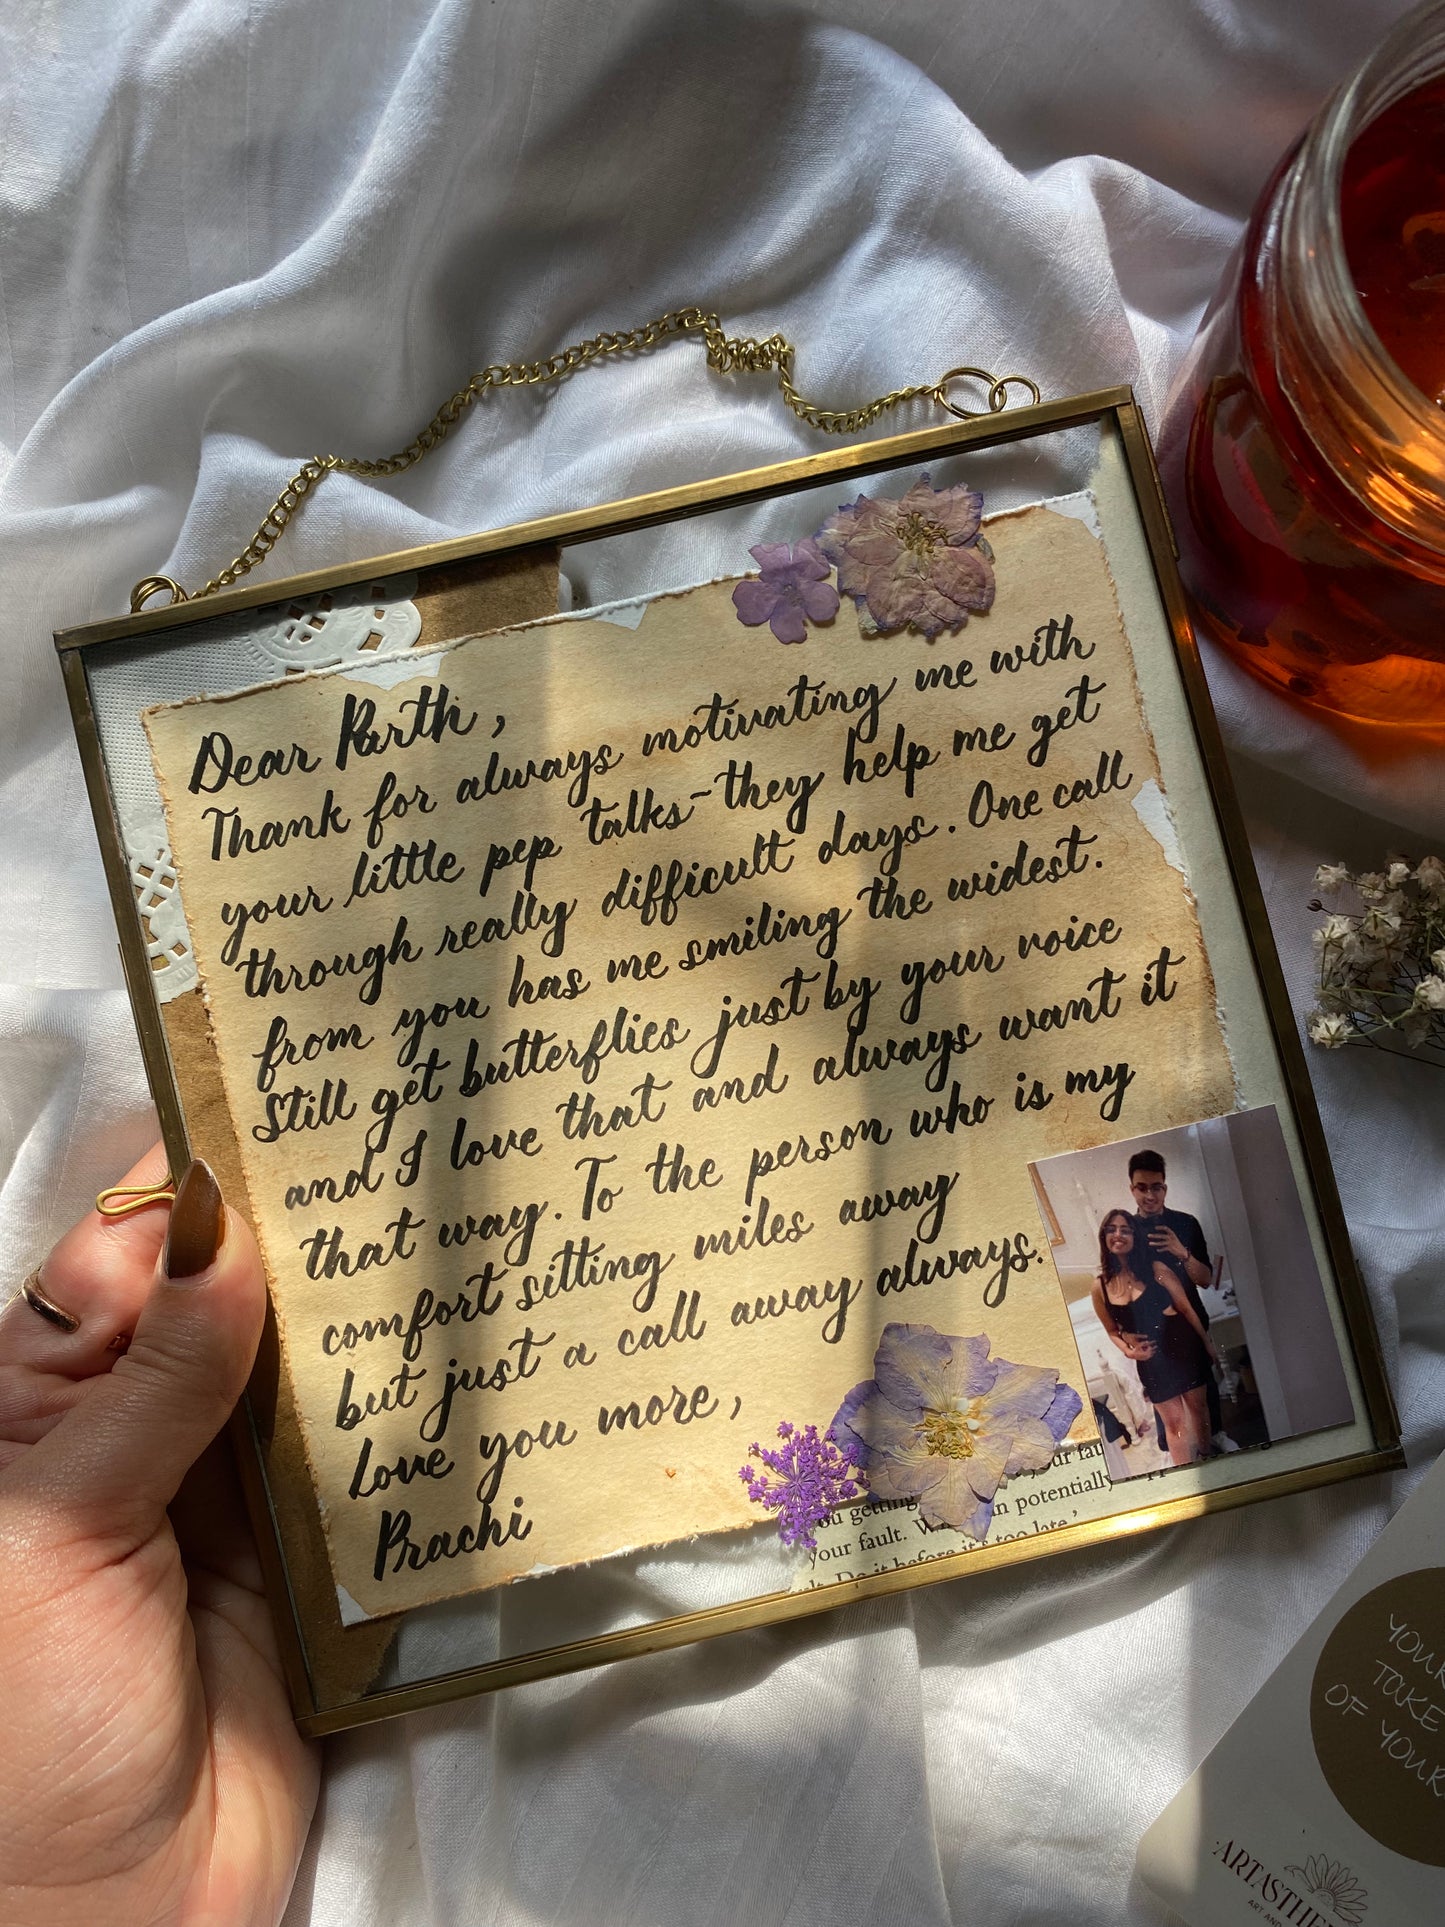 Dear Parth,
Thank for always motivating me with
your little pep talks-they help me get
through really difficult days. One call
from you has me smiling the widest.
Still get butterflies just by your voice
and I love that and always want it
that way. To the person who is my
comfort sitting miles away
but just a call away always.
Love you more,
Prachi
your fau
ou getting
n potentially
your fault. W
Do it before it's too late.'
YOUR
TAKE
OF YOUR
ARTASTHE
ART AN